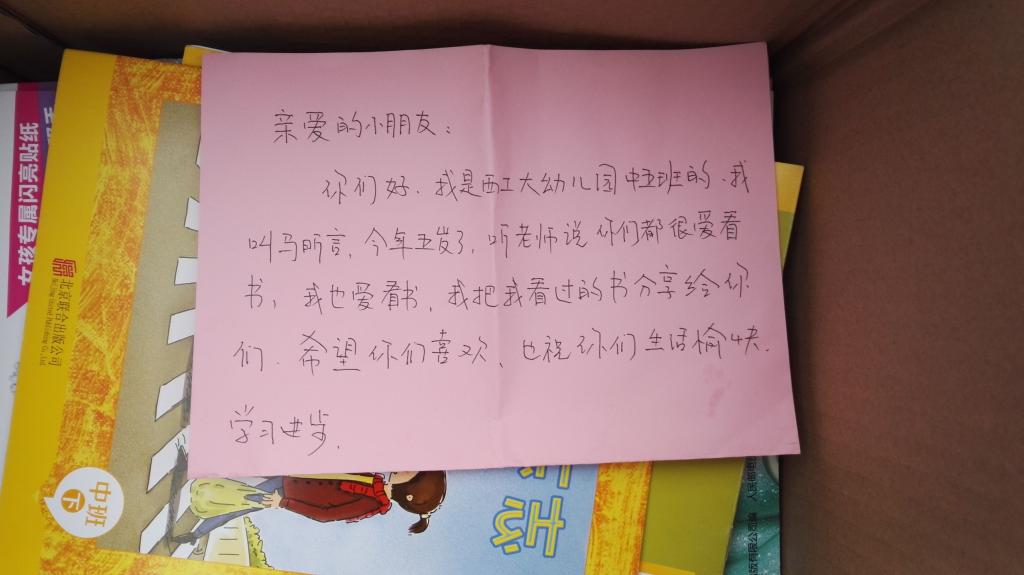 亲爱的小朋友：
你们好.我是西工大幼儿园中五班的.我
叫马昕言,今年五岁了,听老师说你们都很爱看
书,我也爱看书,我把我看过的书分享给你
们.希望你们喜欢、也祝你们生活愉快.
学习进步.
女孩专属闪亮贴纸
北京联合出版公司
Beijing United Publishing Co.,Ltd.
中班
下
志
人民邮电
出版有限公司